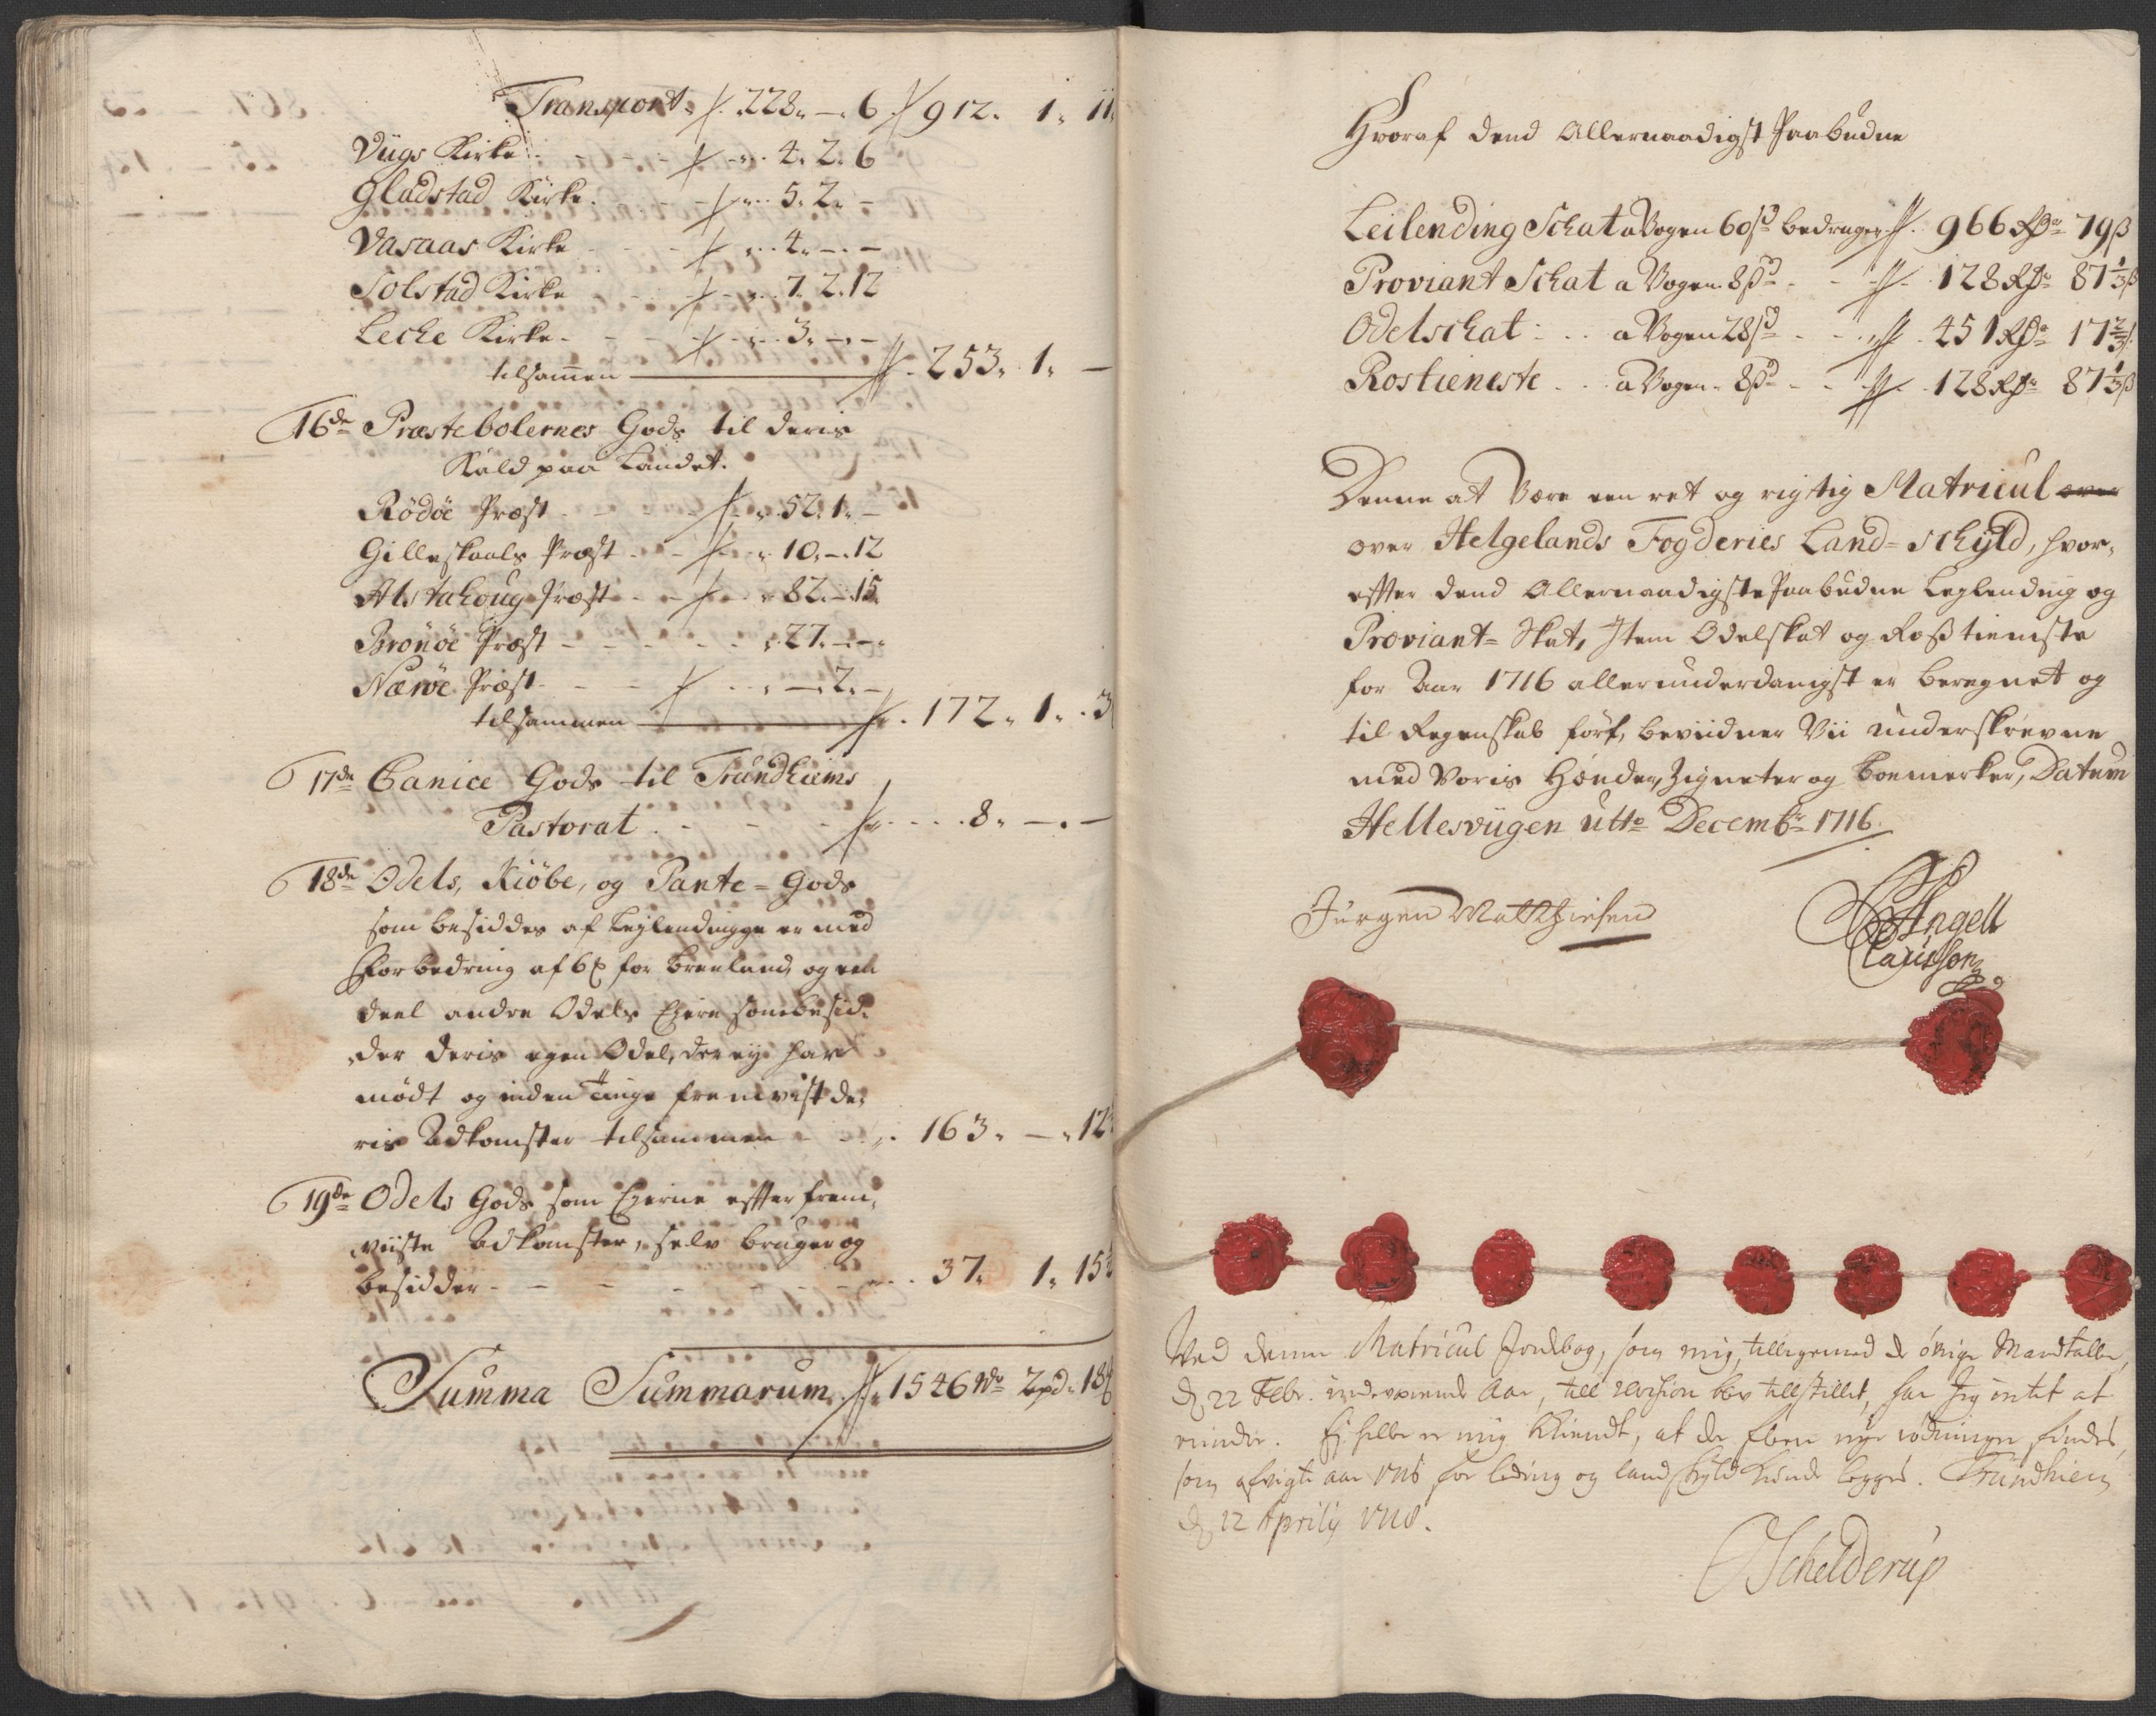 Transport. 228. – 6 912. 1. 11
Vügs Kirke - - - 4. 2. 6
Gladstad Kirke. - - 5. 2. –
Vasaas Kirke - - - 4. – –
Solstad Kirke - - 7. 2. 12
Leche Kirke - - - 3. – –
tilsamen 253. 1. –
16de Præstebolernes Gods til deris
Kald paa Landet.
Rödöe Præst - - - 52. 1. –
Gilleskaals Præst - - 10. – 12
Alstahoug Præst - - 82. – 15.
Brönöe Præst - - - 27. – –
Næröe Præst - - - – 2. –
tilsammen 172. 1. 3
17de Canice Gods til Trundhiems
Pastorat - - - 8. – . –
18de Odels, Kiöbe, og Pante = Gods
som besiddes af Leylendinge er med
Forbedring af 6 for brenland og een
deel andre Odels Eyere som besid-
der deris egen Odel, der ey har
mödt og inden Tinge fremvist de-
ris Adkomster tilsammen - - 163. – . 12
19de Odels Gods som Eyerne effter frem-
viiste Adkomster, selv bruger og
besidder - - - 37. 1. 15
Summa Summarum 1546 Wo 2 pd 18
Hvoraf dend Allernaadigst Paabudne
Leilending Schat a Vogen 60 s bedrager 966 Rdr 79 ß
Proviant Schat a Vogen 8 ß - - 128 Rdr 87 1/3 ß
Odelschat - - a Vogen 28 s - - 451 Rdr 17 2/3
Rostieneste - - a Vogen 8 ß - - 128 Rdr 87 1/3 ß
Denne at Være een ret og rigtig Matricul over
over Helgelands Fogderies Land = schyld, hvor-
effter dend Allernaadigste Paabudne Leylending og
Proviant = Skat, Item Odelskat og Rosstieniste
for Aar 1716 allerunderdanigst er beregnet og
til Regenskab fört, beviidner Vii underskrevne
med Voris Hænder, Zigneter og boemerker, Datum
Hellesviigen Ulto Decembr 1716.
Jürgen Matthiesen
Angell
Claussön
Ved denne Matricul Jordebog, som mig, tilligemed de øvrige Mandtaller,
d 22 Febr. indeværende Aar, till revision blev tillstillet, har Jeg intet at
erindre. Ej heller er mig Kiendt, at der flere nye rödninger findes,
som afvigte aar 1716 for leding og landskyld kunde legges. Trundhiem
d 12 Aprily 1718.
Schelderup